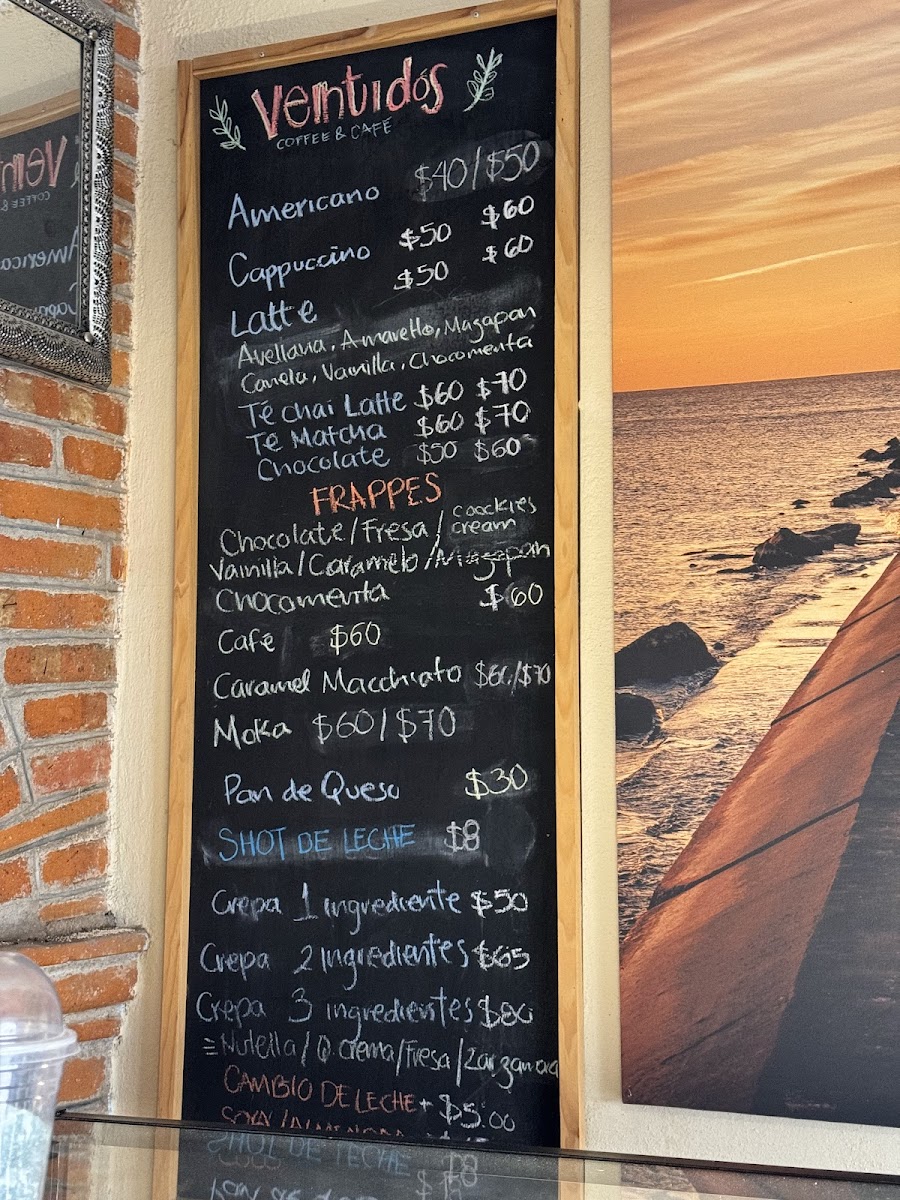 Veintidós
COFFEE & CAFÉ
Americano $40/$50
Cappuccino $50 $60
Latte $50 $60
Avellana, Amaretto, Mazapan
Canela, Vainilla, Chocomenta
Té chai Latte $60 $70
Té Matcha $60 $70
Chocolate $50 $60
FRAPPES
Chocolate/Fresa/coockies cream
Vainilla/Caramelo/Mazapan
Chocomenta $60
Café $60
Caramel Macchiato $60/$70
Moka $60/$70
Pan de Queso $30
SHOT DE LECHE $8
Crepa 1 ingrediente $50
Crepa 2 ingredientes $65
Crepa 3 ingredientes $80
=Nutella/Q.crema/Fresa/Zarzamora
CAMBIO DE LECHE + $5.00
SOYA/ALMENDRA